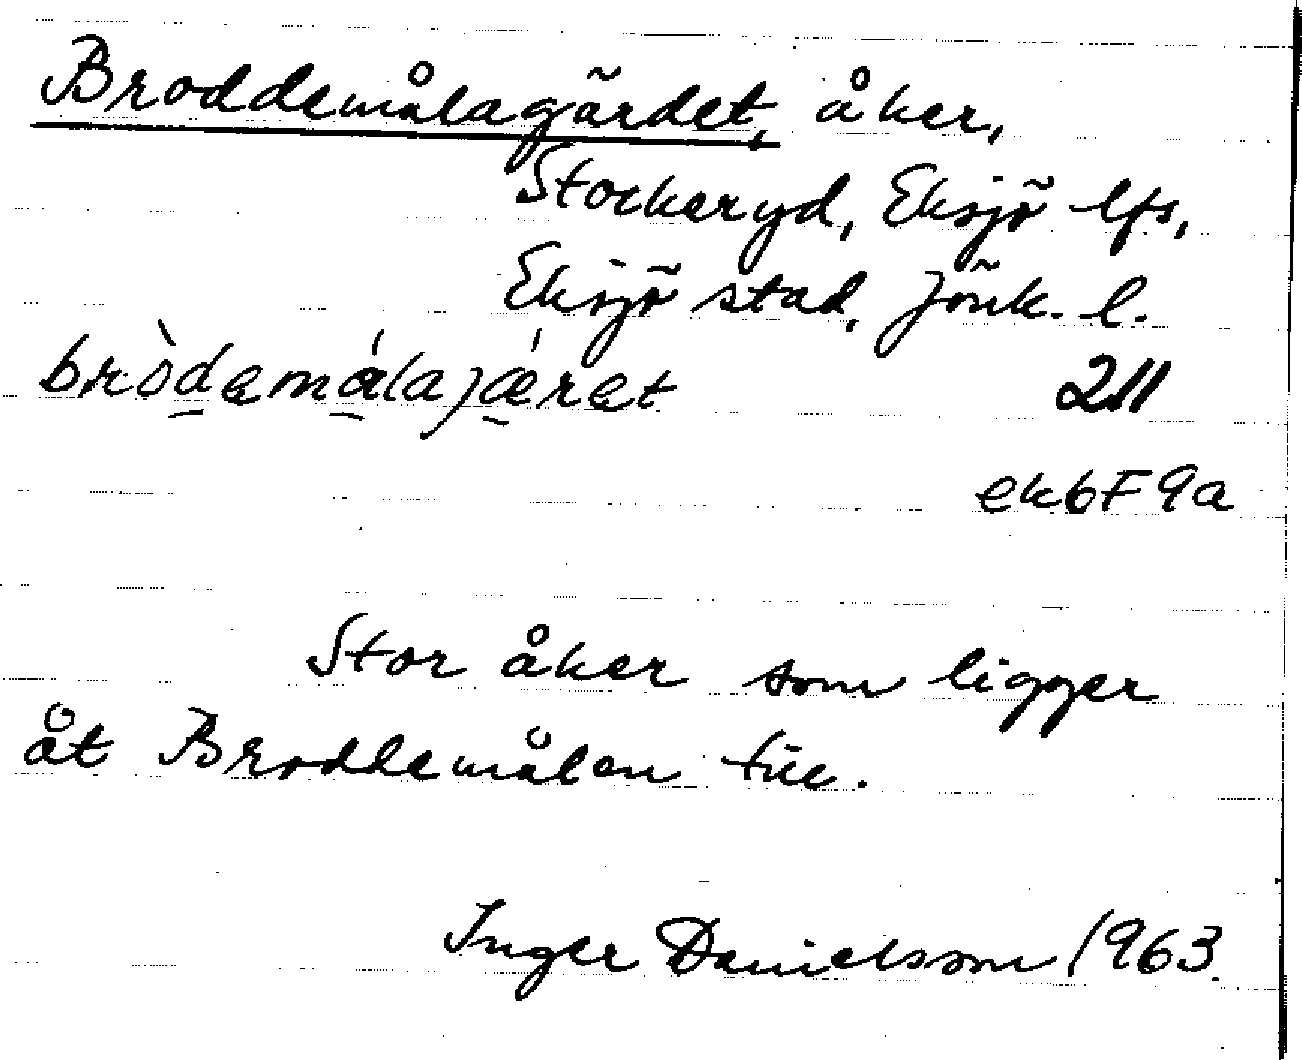 Broddemålagärdet, åker,
Stockeryd, Eksjö lfs,
Eksjö stad, Jönk. l.
bròdemálajǽret 211
ek6F9a
Stor åker som ligger
åt Broddemålen till.
Inger Danielsson 1963